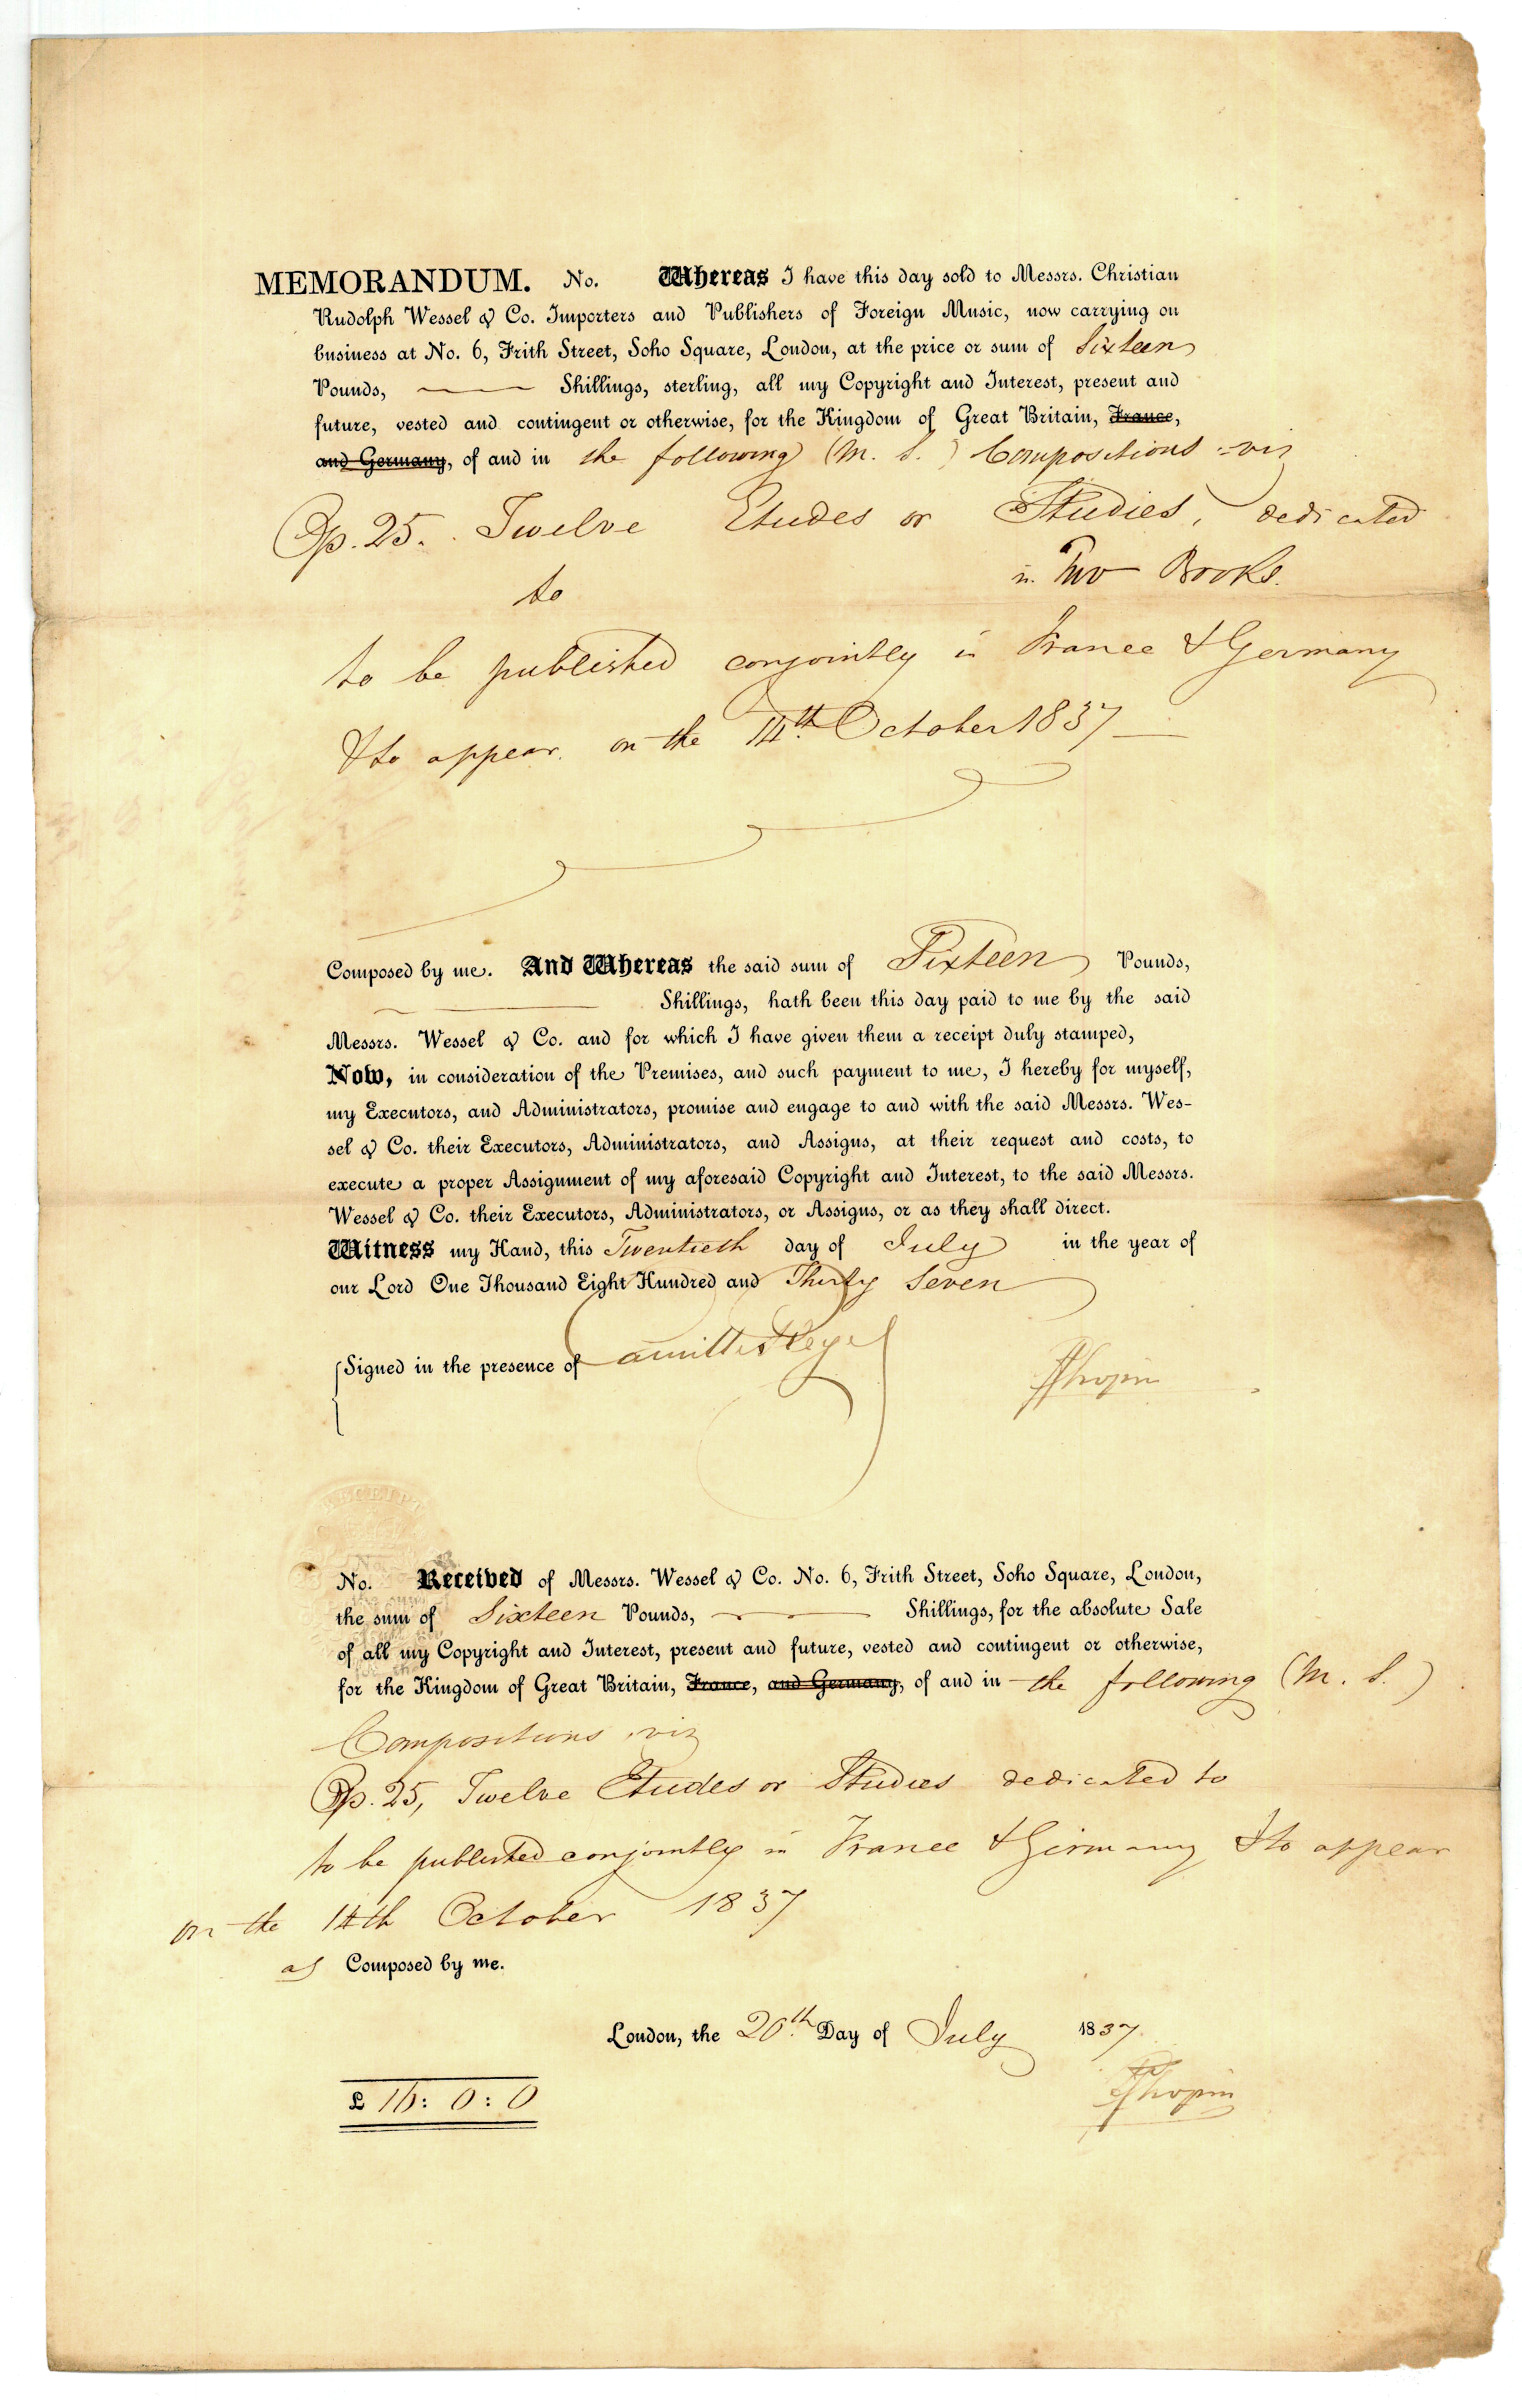 MEMORANDUM. No. Whereas I have this day sold to Messrs. Christian
Rudolph Wessel & Co. Importers and Publishers of Foreign Music, now carrying on
business at No. 6, Frith Street, Soho Square, London, at the price or sum of Sixteen
Pounds, Shillings, sterling, all my Copyright and Interest, present and
future, vested and contingent or otherwise, for the Kingdom of Great Britain, France,
and Germany, of and in the following (M. S.) Compositions viz
Op. 25. Twelve Etudes or Studies, dedicated
in Two Books.
to
to be published conjointly in France & Germany
& to appear on the 14th October 1837
Composed by me. And Whereas the said sum of Sixteen Pounds,
Shillings, hath been this day paid to me by the said
Messrs. Wessel & Co. and for which I have given them a receipt duly stamped,
Now, in consideration of the Premises, and such payment to me, I hereby for myself,
my Executors, and Administrators, promise and engage to and with the said Messrs. Wes-
sel & Co. their Executors, Administrators, and Assigns, at their request and costs, to
execute a proper Assignment of my aforesaid Copyright and Interest, to the said Messrs.
Wessel & Co. their Executors, Administrators, or Assigns, or as they shall direct.
Witness my Hand, this Twentieth day of July in the year of
our Lord One Thousand Eight Hundred and Thirty Seven
Signed in the presence of Camille Pleyel
FChopin
RECEIPT
No. Received of Messrs. Wessel & Co. No. 6, Frith Street, Soho Square, London,
the sum of Sixteen Pounds, Shillings, for the absolute Sale
of all my Copyright and Interest, present and future, vested and contingent or otherwise,
for the Kingdom of Great Britain, France, and Germany, of and in the following (M. S.)
Compositions viz
Op. 25, Twelve Etudes or Studies dedicated to
to be published conjointly in France & Germany & to appear
on the 14th October 1837
as Composed by me.
London, the 20th Day of July 1837.
£ 16: 0: 0
FChopin